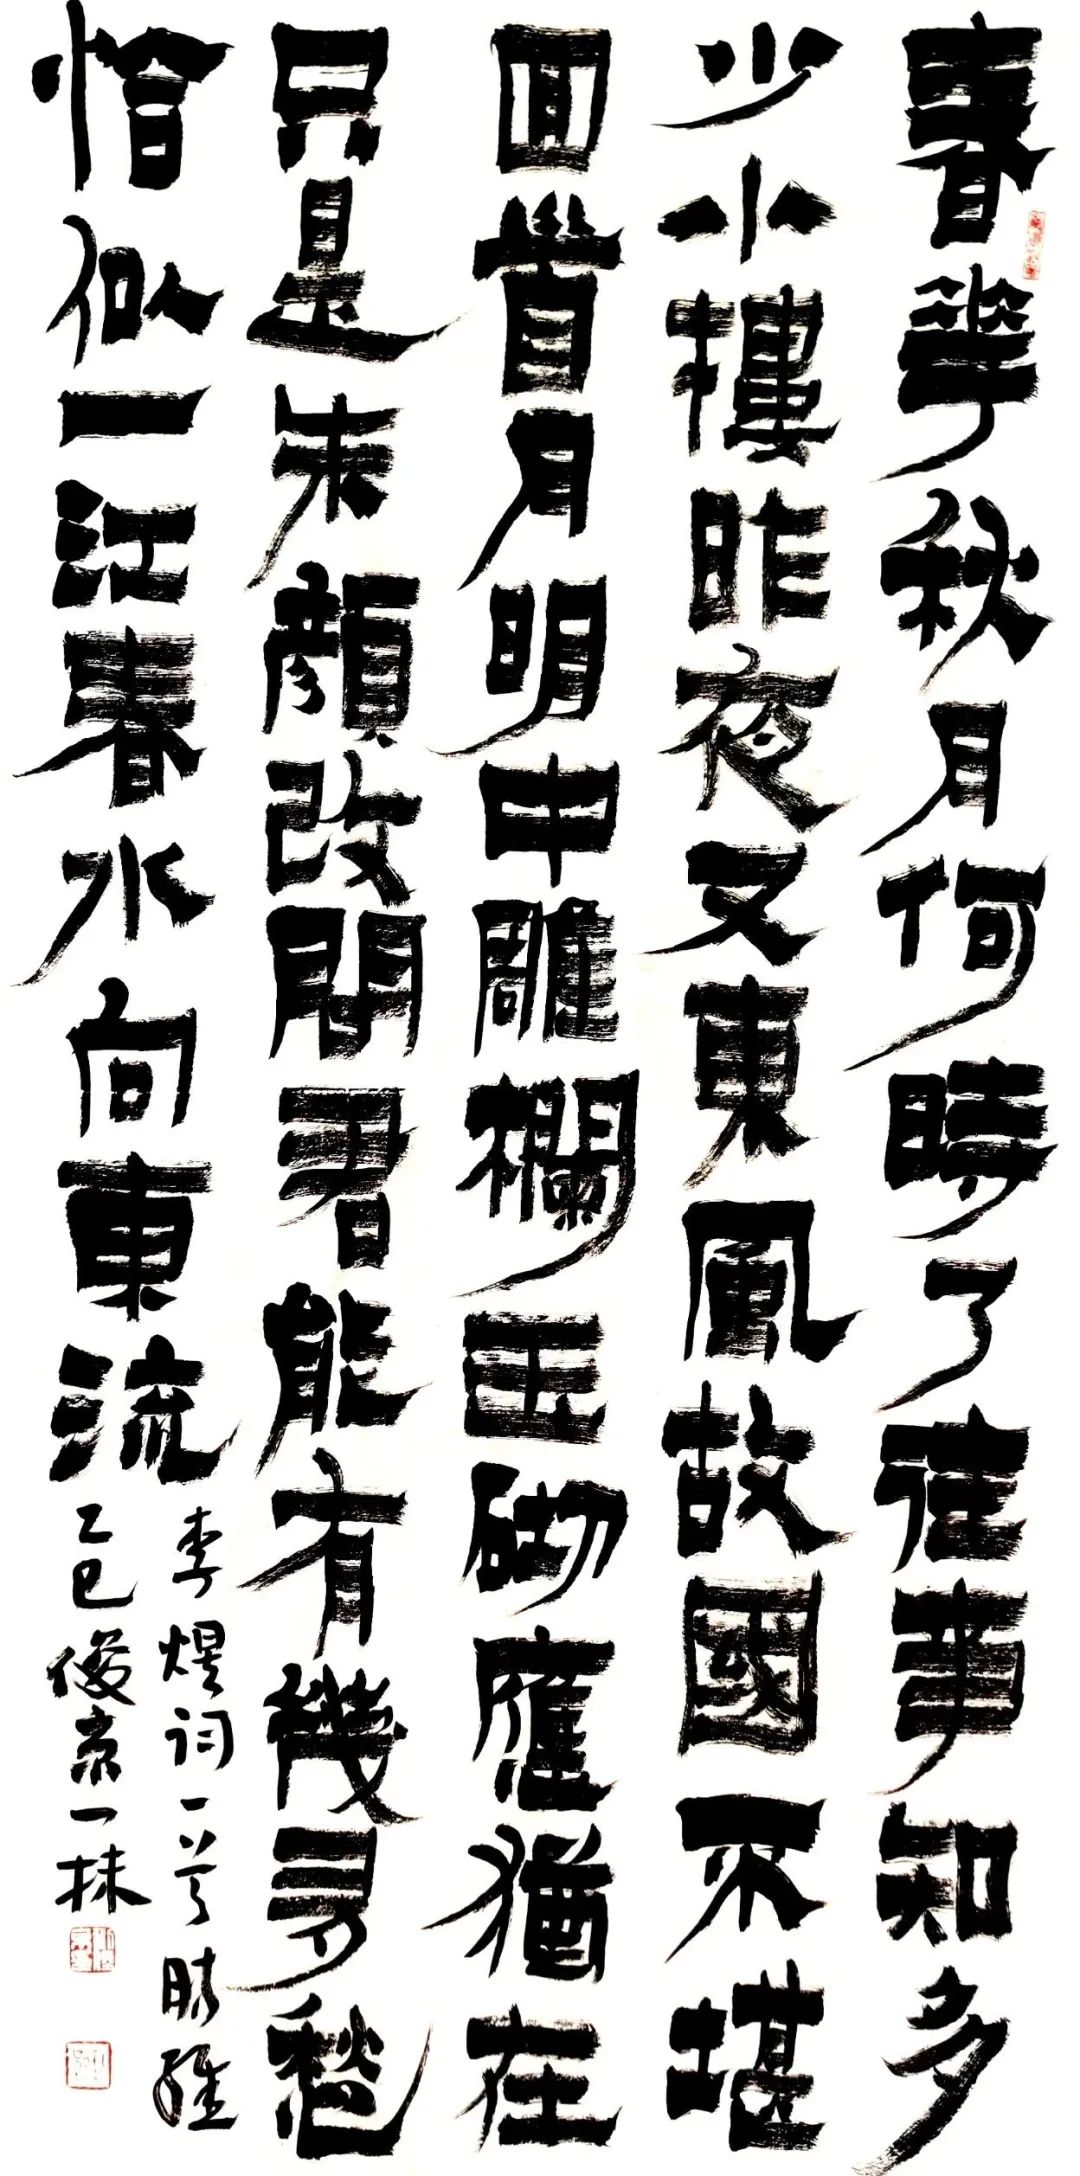 春華秋月何時了往事知多
少小樓昨夜又東風故國不堪
回首月明中雕欄玉砌應猶在
只是朱顏改問君能有幾多愁
恰似一江春水向東流
李煜詞一首時維
乙巳俊一